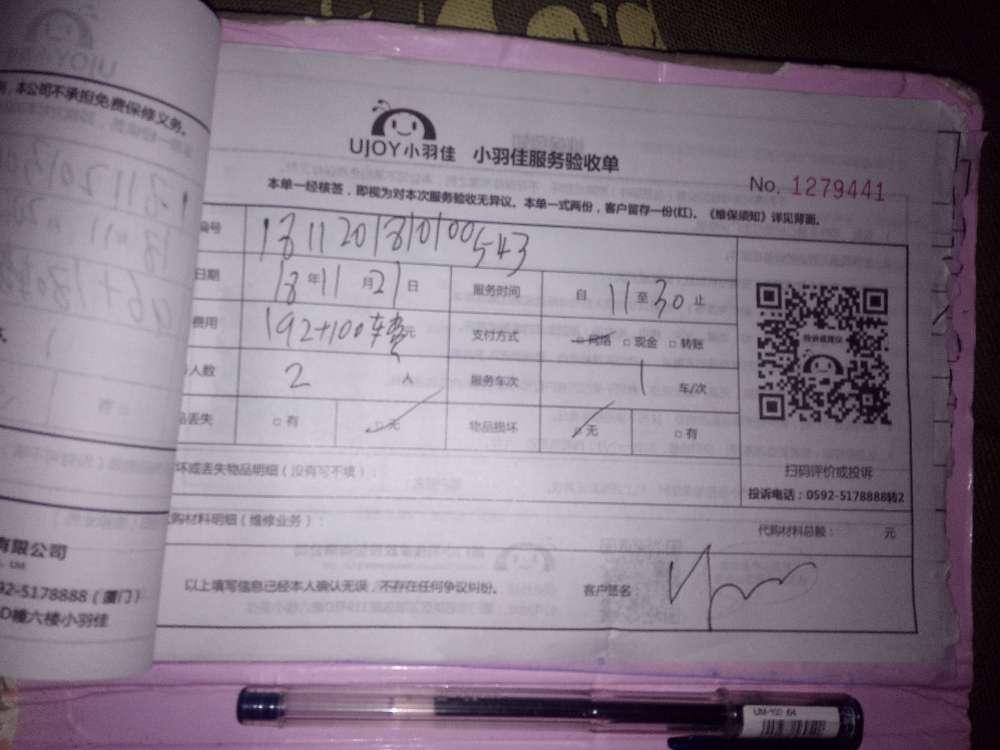 本公司不承担免费保修义务。
UJOY小羽佳 小羽佳服务验收单
No. 1279441
本单一经核签，即视为对本次服务验收无异议。本单一式两份，客户留存一份(红)。《维保须知》详见背面。
编号 1811201810100543
日期 18年11月21日 服务时间 自 11 至 30 止
费用 192+100车费元 支付方式 □网络 □现金 □转账
人数 2 人 服务车次 1 车/次
品丢失 □有 □无 物品损坏 □无 □有
坏或丢失物品明细（没有可不填）：
扫码评价或投诉
投诉电话：0592-5178888转2
代购材料明细（维修业务）： 代购材料总额： 元
以上填写信息已经本人确认无误，不存在任何争议纠纷。 客户签名：
有限公司
92-5178888（厦门）
D幢六楼小羽佳